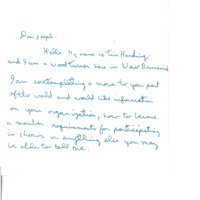 Dear people.
Hello My name is Tim Harding
and I am a wood turner here in New Brunswick
I am contemplating a move to your part
of the world and would like information
on your organization, how to become
a member requirements for participating
in shows or anything else you may
be able to tell me.